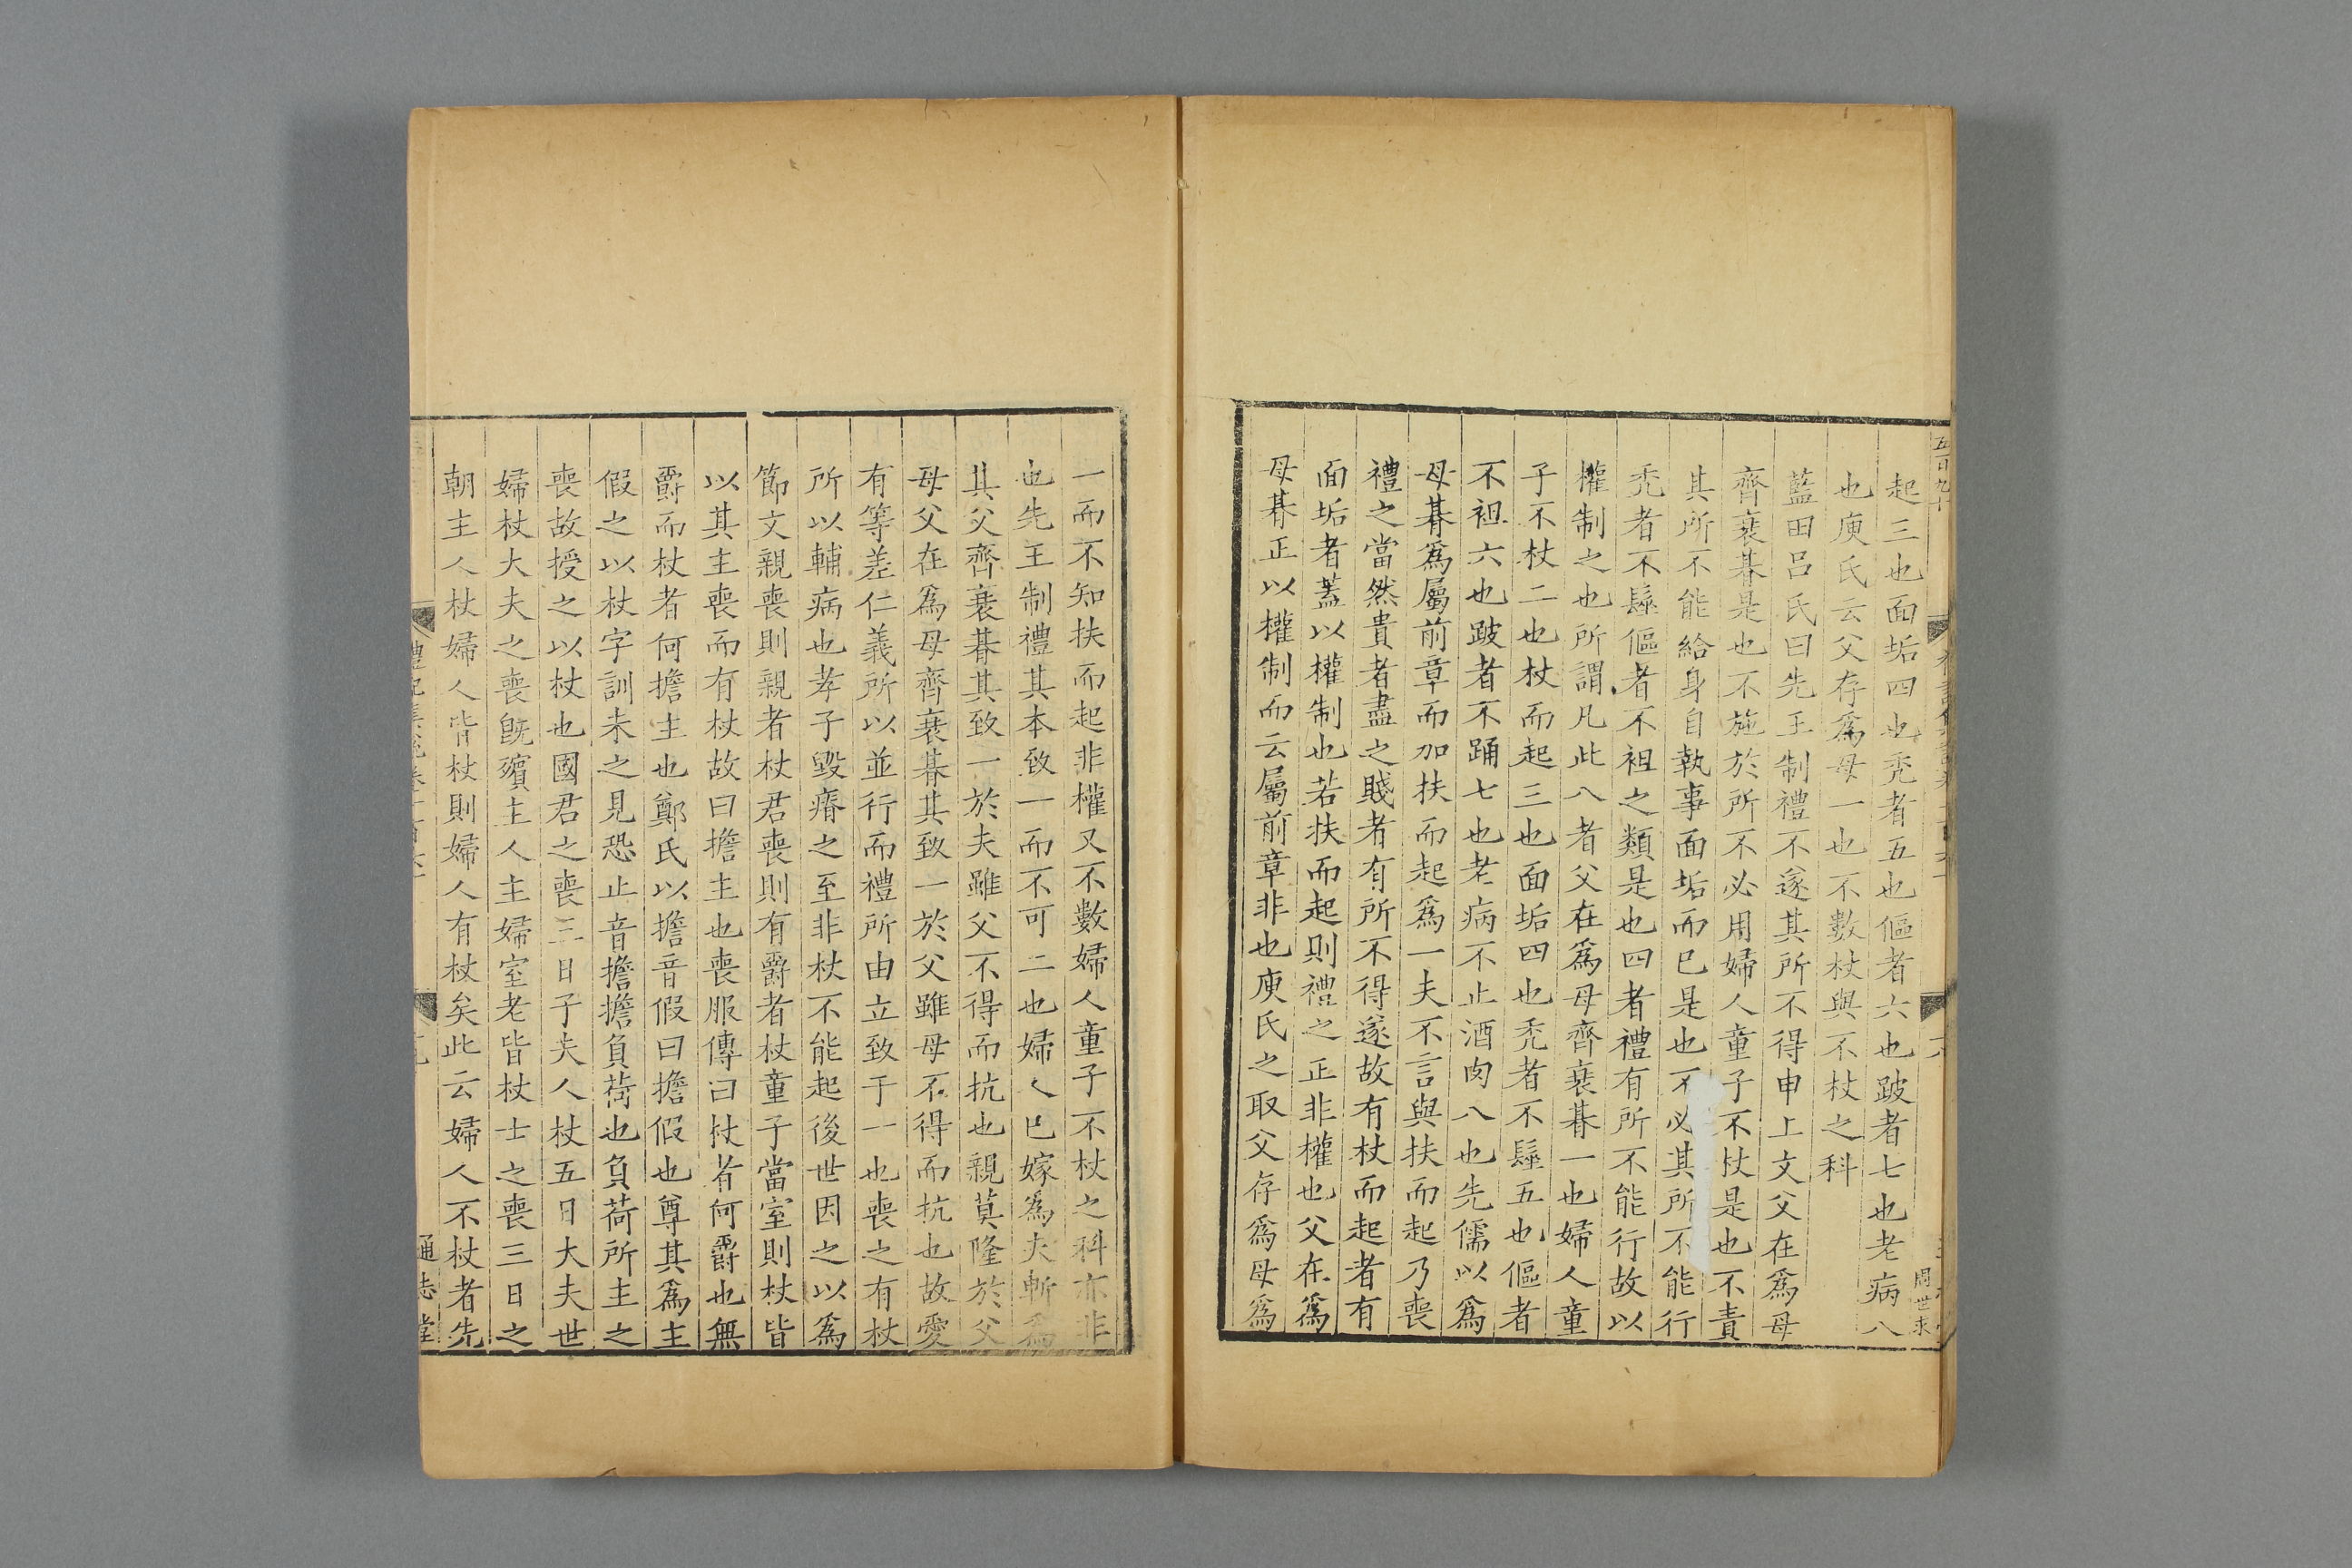 起三也面垢四也禿者五也傴者六也跛者七也老病八
也庾氏云父存爲母一也不數杖與不杖之科
藍田呂氏曰先王制禮不遂其所不得申上文父在爲母
齊衰朞是也不施於所不必用婦人童子不杖是也不責
其所不能給身自執事面垢而已是也不必其所不能行
禿者不髽傴者不袒之類是也四者禮有所不能行故以
權制之也所謂凡此八者父在爲母齊衰朞一也婦人童
子不杖二也杖而起三也面垢四也禿者不髽五也傴者
不袒六也跛者不踊七也老病不止酒肉八也先儒以爲
母朞爲屬前章而加扶而起爲一夫不言與扶而起乃喪
禮之當然貴者盡之賤者有所不得遂故有杖而起者有
面垢者蓋以權制也若扶而起則禮之正非權也父在爲
母朞正以權制而云屬前章非也庾氏之取父存爲母爲
一而不知扶而起非權又不數婦人童子不杖之科亦非
也先王制禮其本致一而不可二也婦人已嫁爲夫斬爲
其父齊衰朞其致一於夫雖父不得而抗也親莫隆於父
母父在爲母齊衰朞其致一於父雖母不得而抗也故愛
有等差仁義所以並行而禮所由立致于一也喪之有杖
所以輔病也孝子毀瘠之至非杖不能起後世因之以爲
節文親喪則親者杖君喪則有爵者杖童子當室則杖皆
以其主喪而有杖故曰擔主也喪服傳曰杖者何爵也無
爵而杖者何擔主也鄭氏以擔音假曰擔假也尊其爲主
假之以杖字訓未之見恐止音擔擔負荷也負荷所主之
喪故授之以杖也國君之喪三日子夫人杖五日大夫世
婦杖大夫之喪旣殯主人主婦室老皆杖士之喪三日之
朝主人杖婦人皆杖則婦人有杖矣此云婦人不杖者先
通志堂
周世求